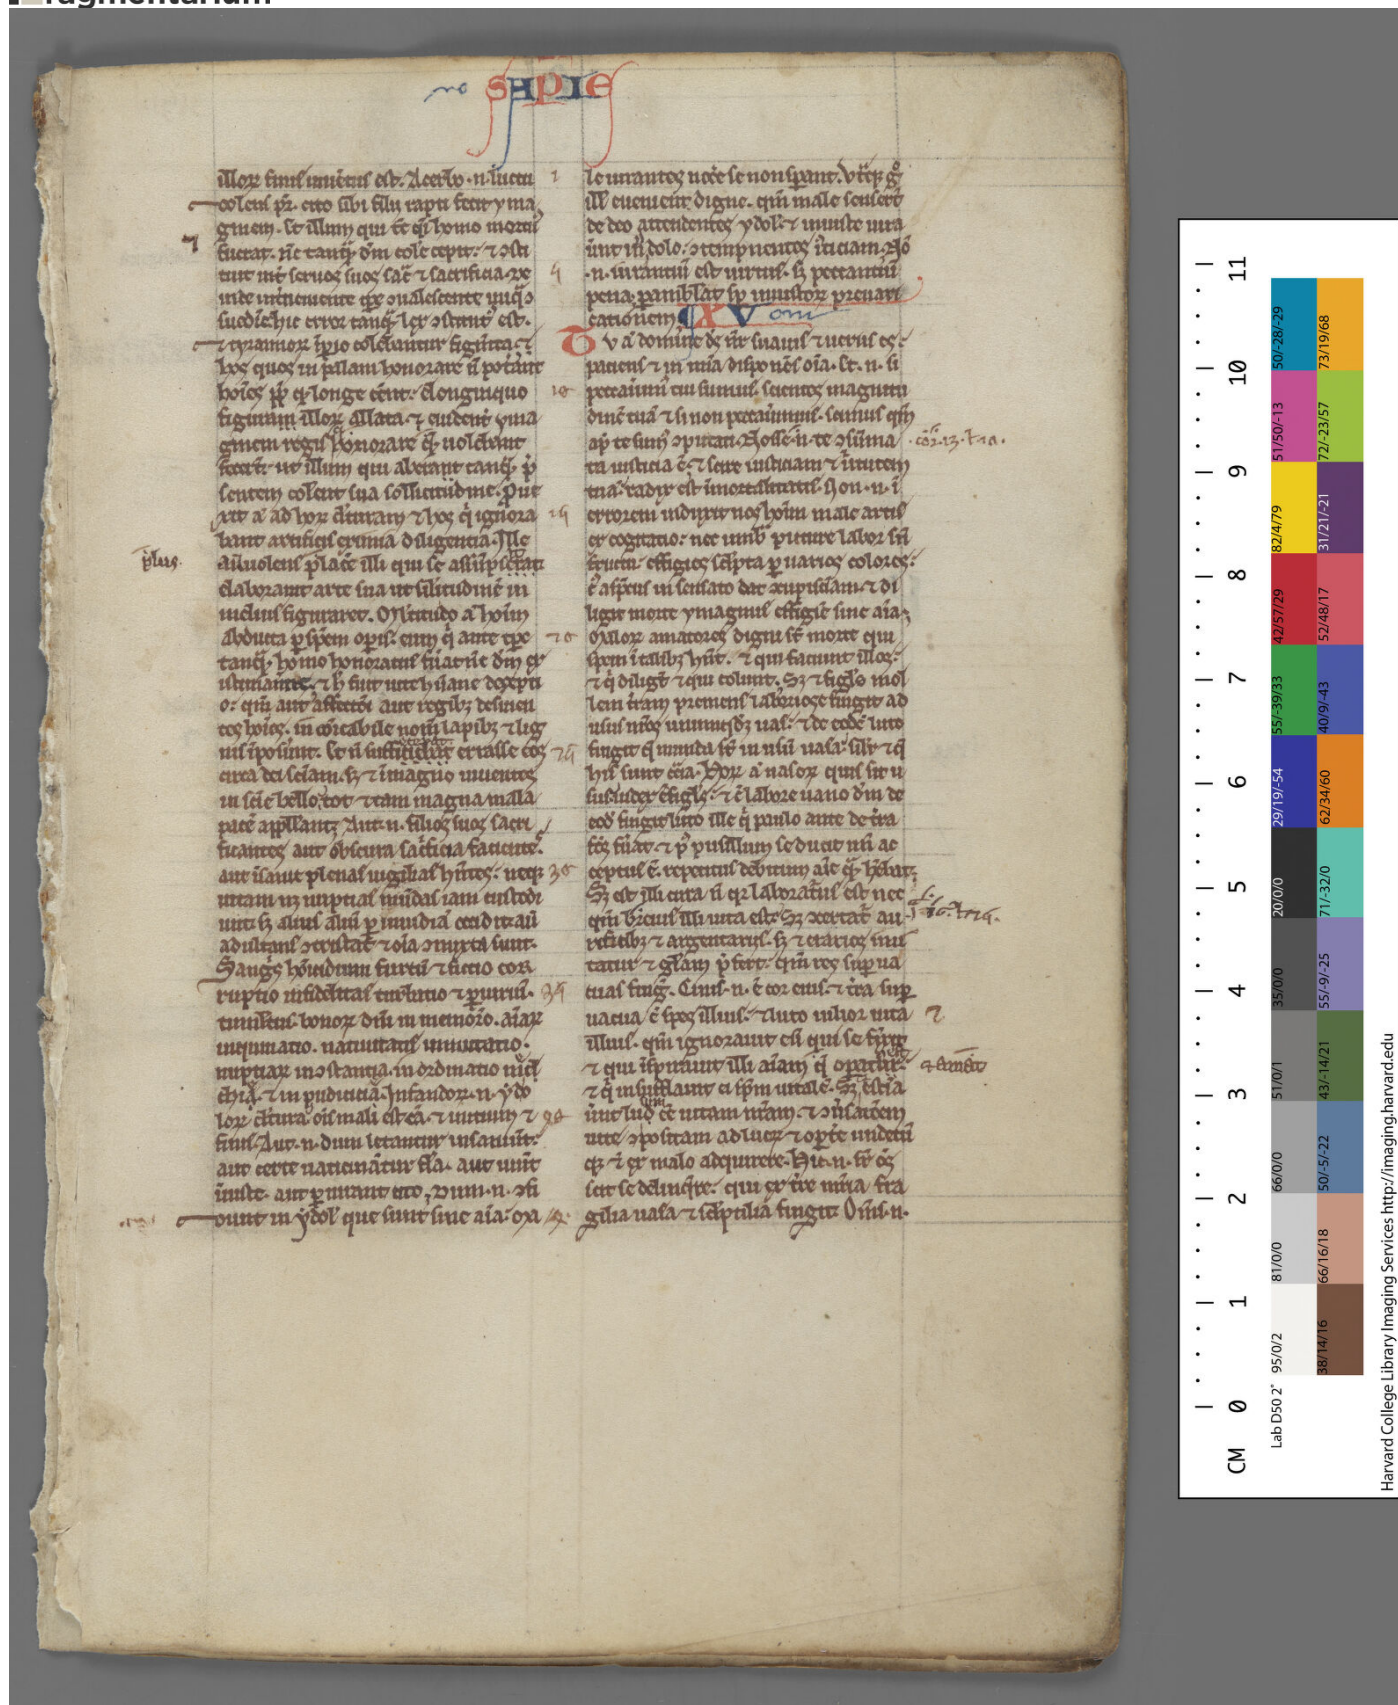 fragmentarium
SAPIE
illoꝝ finis inuentus est. Acerbo .n. luctu
dolens pr̄. cito sibi filii rapti fecit yma
ginem. Et illum qui tc̄ qͣi homo mortuꝰ
fuerat. nc̄ tanqͣ dm̄ colere cepit. ⁊ ꝯsti
tuit int̄ seruos suos sacͣ ⁊ sacrificia. De
inde int̄ueniente tꝑe ꝯualescente iniqͣ ꝯ
suetudīe hic error tanqͣ lex ꝯ
⁊ tyrannoꝝ īꝑio colebantur figm̄ta. ⁊
hos quos in palam honorare n̄ poterāt
hoīes ꝓp̄ qꝫ longe eēnt. Elonginquo
figuram illoꝝ allata. ⁊ euidentē yma
ginem regis honorare qͣ uolebant
fecerūt ut illum qui aberant tanqͣ p̄
sentem colerēt sua sollicitudine. Proue
xit aͣ ad hoꝝ ⁊ hos qͥ ignora
bant artificis eximia diligentia. Ille
eni uolens placēe illi qui se assūpserat
elaborauit arte sua ut sīlitudinē in
melius figuraret. Mͭltitudo aͣ hoīm
abducta ꝑ spēm opis. eum qͥ ante tꝑs
tanqͣ homo honoratus fuͣat nc̄ dm̄ ex
istimauerūt. ⁊ h̄ fuit uite hūane decepti
o. qm̄ aut affectui aut regibꝫ deseruien
tes hoīes. incōicabile nom̄ lapibꝫ ⁊ lig
nis īposuerūt. Et n̄ suffecerat errasse eos
circa dei sciam. sꝫ ⁊ ī magno uiuentes
insciē bello. tot ⁊ tam magna mala
pacē appellant. Aut .n. filios suos sacri
ficantes aut obscura sacͥficia facientes
aut īsanie plenas uigilias hn̄tes. neqꝫ
uitam nꝫ nuptias mūdas iam custodi
unt sꝫ alius aliū ꝑ inuidiā occidit aū
adultans ꝯtristat. ⁊ oīa ꝯmixta sunt.
Sanguis homicidium furtū ⁊ fictio cor
ruptio infidelitas turbatio ⁊ ꝑiuriū.
tumltus bonoꝝ dm̄ in memorio. aīaꝝ
inquinatio. natiuitatis inmutatio.
nuptiaꝝ inꝯstantia. inordinatio mech
chia. ⁊ inpudicicia. Infandoꝝ .n. ydo
loꝝ cultura oīs mali est cā. ⁊ initium ⁊
finis. Aut .n. dum letantur insaniūt.
aut certe uaticinantur fla. aut uiuūt
iniuste. aut ꝑiurant cito. Dum .n. ꝯfi
dunt in ydol que sunt sine aīa. oxa
plus
1
5
10
15
20
25
30
35
40
le iurantes noce se non sperant. Utͣqꝫ gͦ
ill eueniet digne. qm̄ male senserūt
de deo attendentes ydol. ⁊ iniuste iura
uerūt in dolo. ꝯtempnentes iusticiam. Nō
.n. iurantiū est uirtus. sꝫ peccantiū
pena. ꝑambulat sꝑ iniustoꝝ preuari
cationem XV
Tu aͣ domine ds̄ nr̄ suauis ⁊ uerus es.
patiens ⁊ in mīa disponēs oīa. Et .n. si
peccauimꝰ tui sumus. scientes magnitu
dinē tuā. ⁊ si non peccauimus. scimus qm̄
ap̄ te sumꝰ ꝯputati. Nosse .n. te ꝯsūma
ta iusticia ē. ⁊ scire iusticiam ⁊ uirtutem
tuā. radix est īmortalitatis. Non .n. ī
errorem induxit nos hoīm male artis
ex cogitatio. nec umbͣ picture labor sn̄
fructu. effigies scͥlpta ꝑ uarios colores.
cͥ aspectus insensato dat ꝯcupiscīam. ⁊ di
ligit mortue ymaginis effigiē sine aīa.
Maloꝝ amatores digni st̄ morte qui
spem ī talibꝫ hn̄t. ⁊ qui faciunt illos.
⁊ qͥ diligūt ⁊ qui colunt. Sꝫ ⁊ figlꝰ mol
lem terram premens laboriose fingit ad
usus nr̄os unumqdꝫ uas. ⁊ de eodē luto
fingit qͣ munda st̄ in usū uasa. silr̄ ⁊ qͣ
his sunt ꝯtͣria. Hoꝝ aͣ uasoꝝ quis sit u
sus iudex ē figlꝰ. ⁊ cͥ labore uano dm̄ de
eodē fingit luto ille qͥ paulo ante de terra
fcs̄ fuͣat. ⁊ pꝰ pusillum se ducit un̄ ac
ceptus ē. repetitus debitum aīe qͣ hēbat.
Sꝫ est illi cura n̄ qꝫ laboraturus est nec
qm̄ breuis illi uita est. Sꝫ ꝯcertat au
rificibꝫ ⁊ argentariis. sꝫ ⁊ erarios imi
tatur ⁊ glam p̄fert. qm̄ res suꝑua
cuas finḡ. Cinis .n. ē cor eius. ⁊ tͣra suꝑ
uacua ē spes illius. ⁊ luto uilior uita
illius. qm̄ ignorauit eū qui se finxit
⁊ qui īspirauit illi aīam qͣ operatur.
⁊ qͥ insufflauit ei spm̄ uitalē. Sꝫ ⁊ estīa
uerūt lud ēe uitam nr̄am. ⁊ ꝯuersatōem
uite ꝯpositam ad lucꝝ ⁊ oportē undecū
qꝫ ⁊ ex malo adquirere. Hic .n. suꝑ oēs
scit se delinqͣre. qui ex terre mͣria fra
gilia uasa ⁊ scͥlptilia fingit. Om̄s .n.
11
10
9
8
7
6
5
4
3
2
1
0
CM
Lab D50 2°
95/0/2
81/0/0
66/0/0
51/0/1
35/0/0
20/0/0
29/19/-54
55/-39/33
42/57/29
82/4/79
51/50/-13
50/-28/-29
38/14/16
66/16/18
50/-5/-22
43/-14/21
55/-9/-25
71/-32/0
62/34/60
40/9/-43
52/48/17
31/21/-21
72/-23/57
73/19/68
Harvard College Library Imaging Services http://imaging.harvard.edu